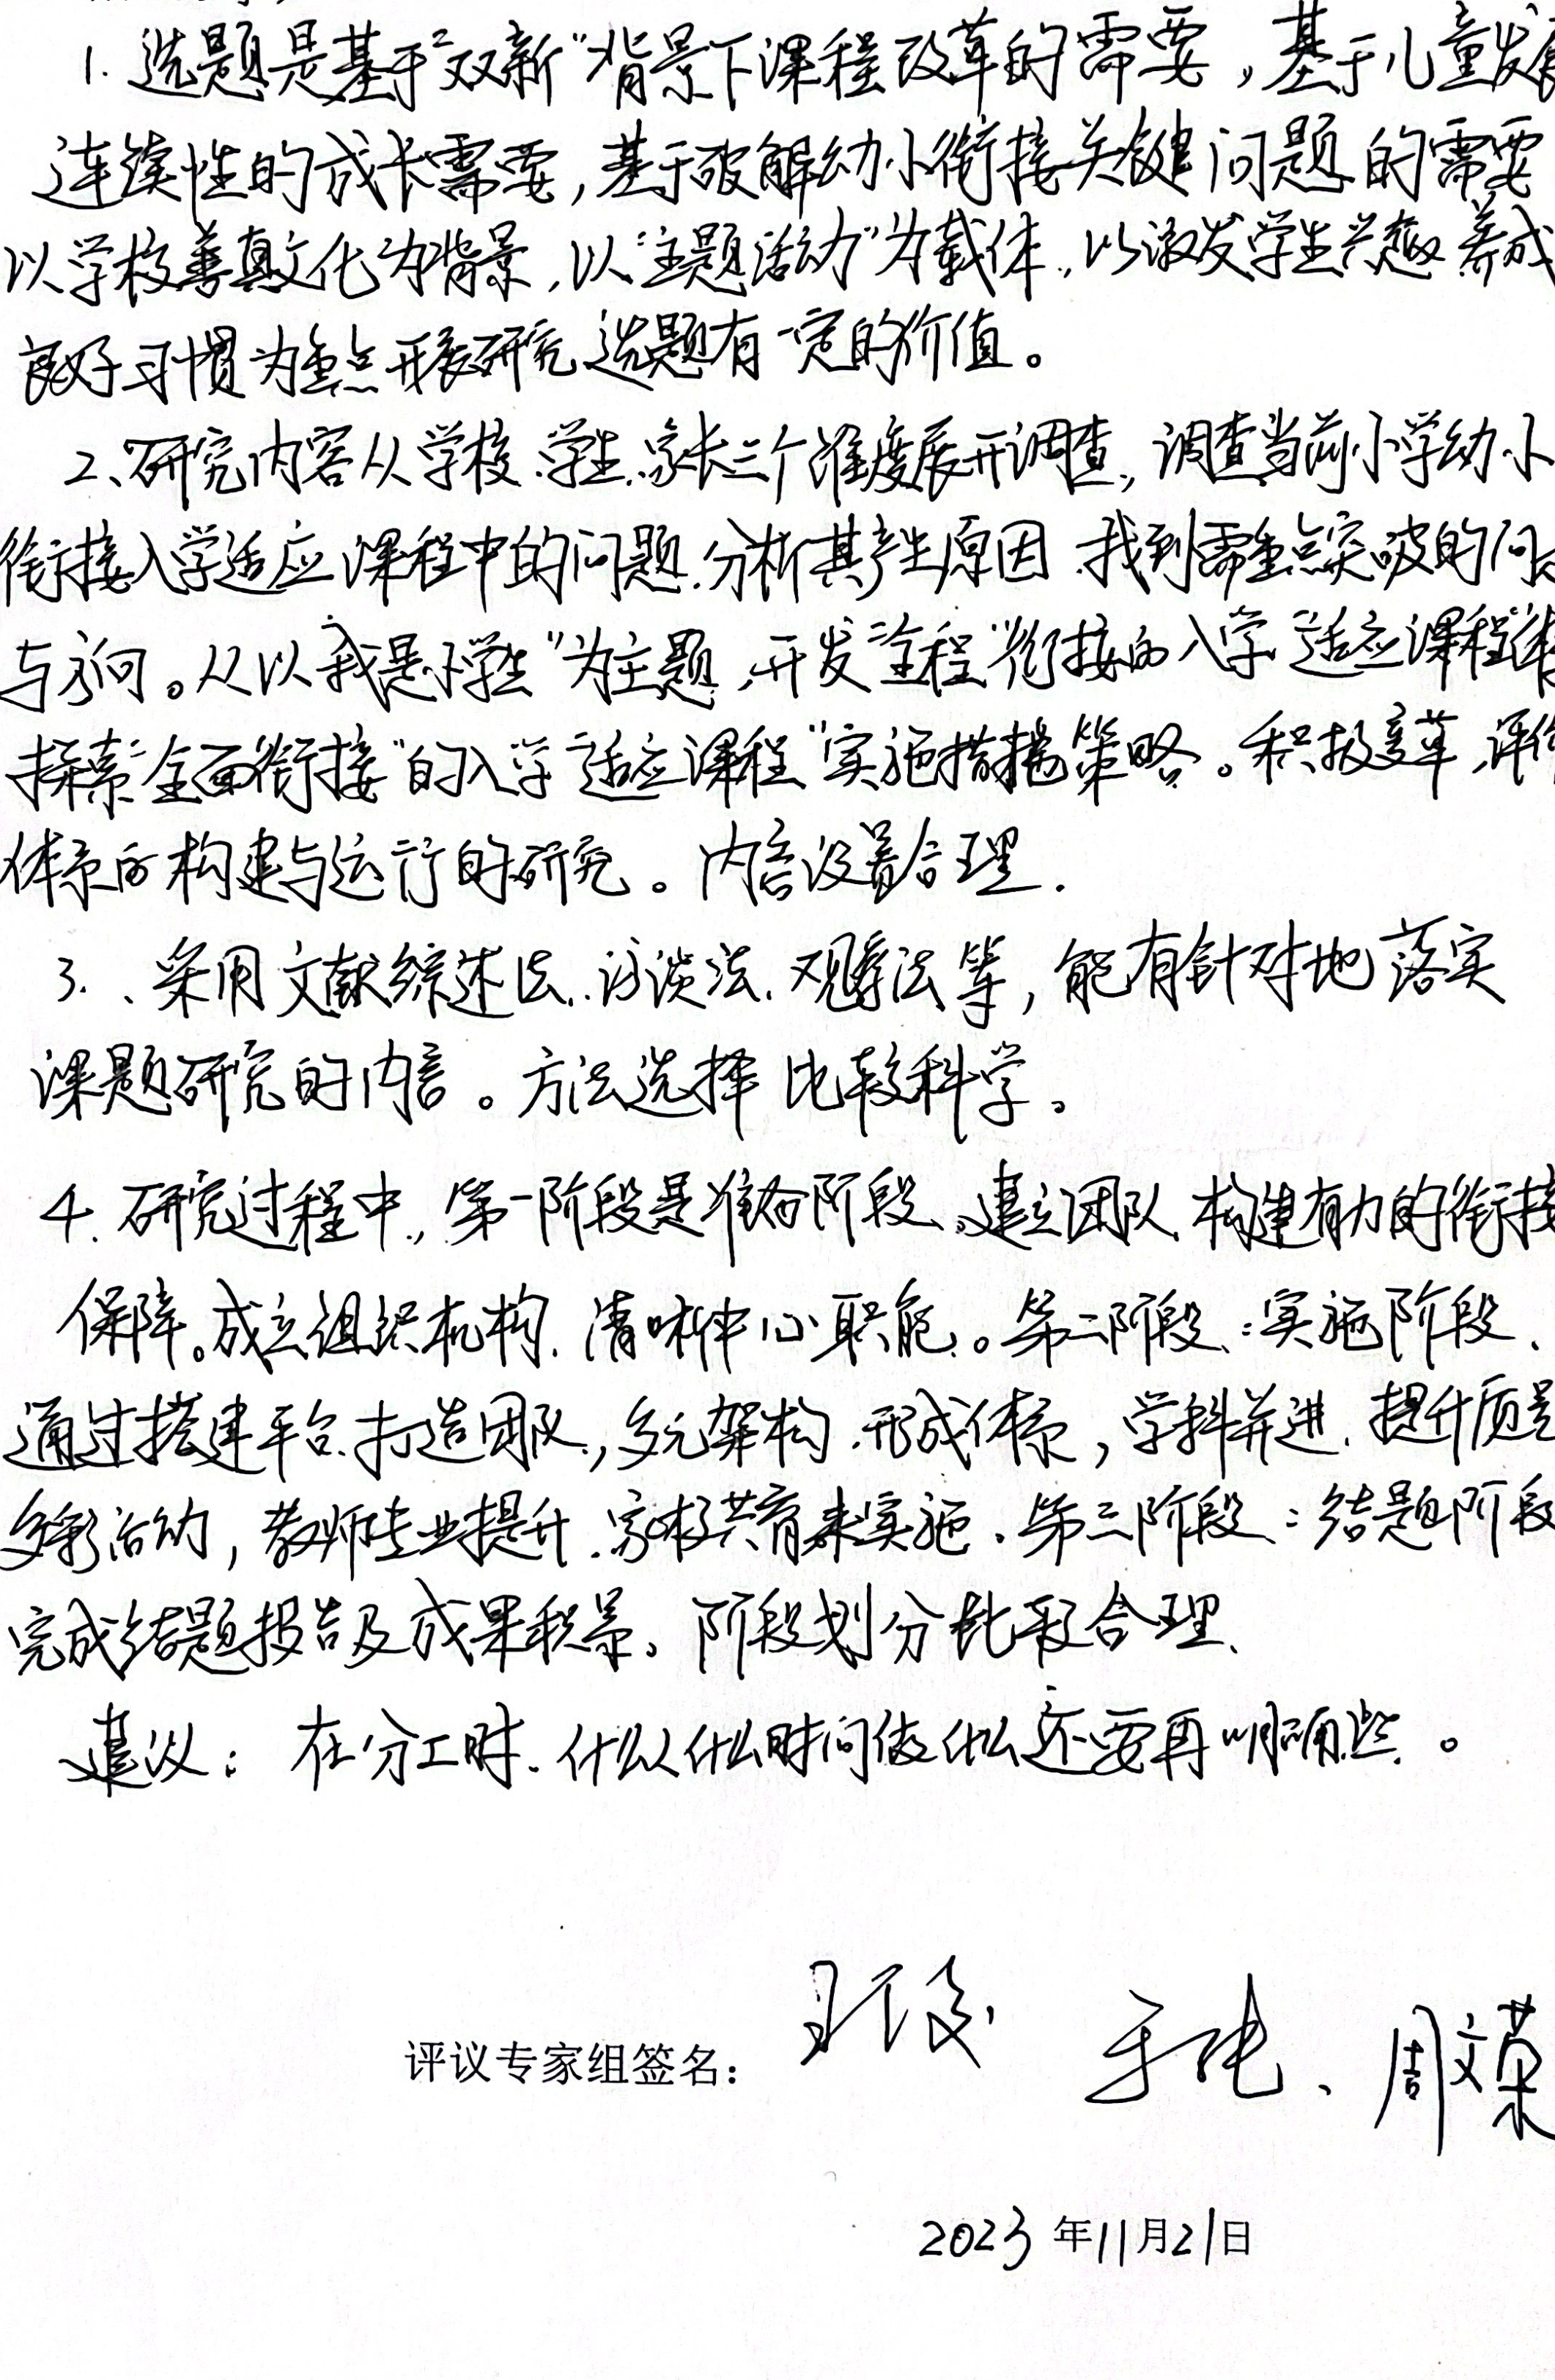 1. 选题是基于"双新"背景下课程改革的需要，基于儿童发展
连续性的成长需要，基于破解幼小衔接关键问题的需要
以学校善真文化为背景，以"主题活动"为载体，以激发学生兴趣养成
良好习惯为重点开展研究选题有一定的价值。
2、研究内容从学校、学生、家长三个维度展开调查，调查当前小学幼小
衔接入学适应课程中的问题、分析其产生原因、找到需重点突破的问
与方向。从以"我是小学生"为主题，开发"全程"衔接的入学"适应课程
探索"全面衔接"的入学"适应课程"实施措施策略。积极变革，评价
体系的构建与运行的研究。内容设置合理.
3.、采用文献综述法、访谈法、观察法等，能有针对地落实
课题研究的内容。方法选择比较科学。
4. 研究过程中，第一阶段是准备阶段、建立团队、构建有力的衔接
保障。成立组织机构、清晰中心职能。第二阶段：实施阶段、
通过搭建平台、打造团队，多元架构、形成体系，学科并进、提升质量
多彩活动，教师专业提升、家校共育来实施。第三阶段：结题阶段
完成结题报告及成果积累。阶段划分比较合理、
建议：在分工时、什么人什么时间做什么还要再明确些。
评议专家组签名： 、周文荣
2023年11月21日